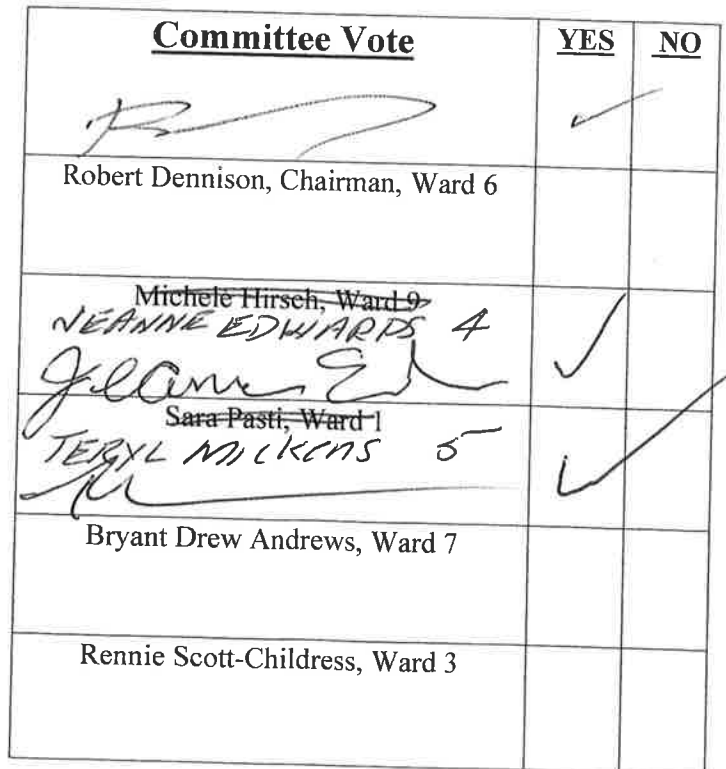 Committee Vote YES NO
Robert Dennison, Chairman, Ward 6
Michele Hirsch, Ward 9
JEANNE EDWARDS 4
Jeanne Ed
Sara Pasti, Ward 1
TERYL MICKENS 5
Bryant Drew Andrews, Ward 7
Rennie Scott-Childress, Ward 3